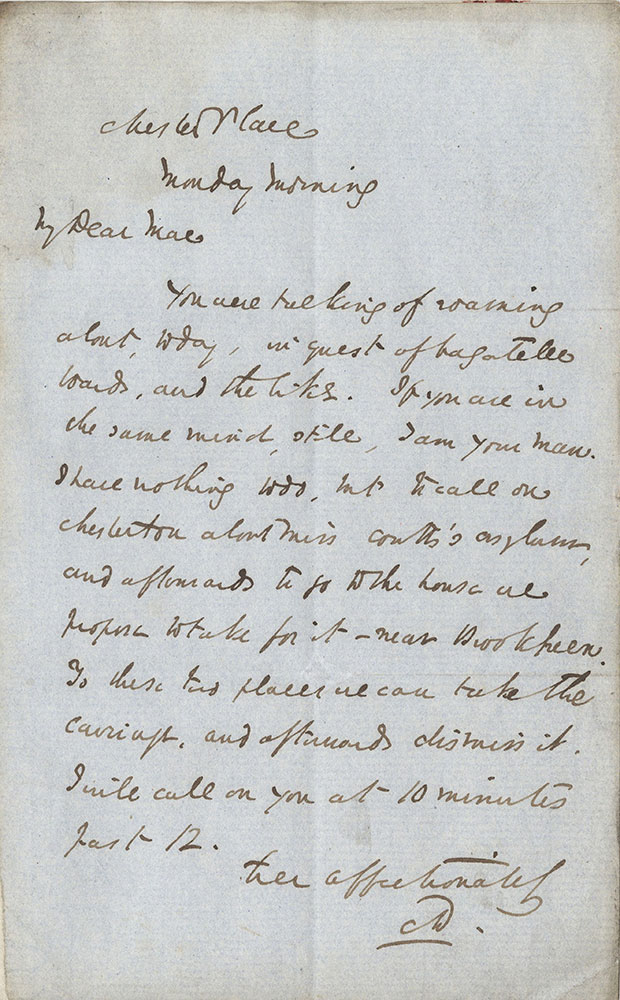 Chester Place
Monday Morning
My Dear Mac
You were talking of roaming
about, today, in quest of bagatelle
boards, and the like. If you are in
the same mind, still, I am your man.
I have nothing to do, but to call on
Chesterton about Miss Coutts's asylum,
and afterwards to go to the house we
propose to take for it – near
To these two places we can take the
carriage, and afterwards dismiss it.
I will call on you at 10 minutes
past 12.
Ever affectionately
CD.